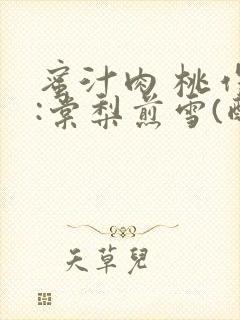 蜜汁肉桃作
:棠梨煎雪(
天草兒